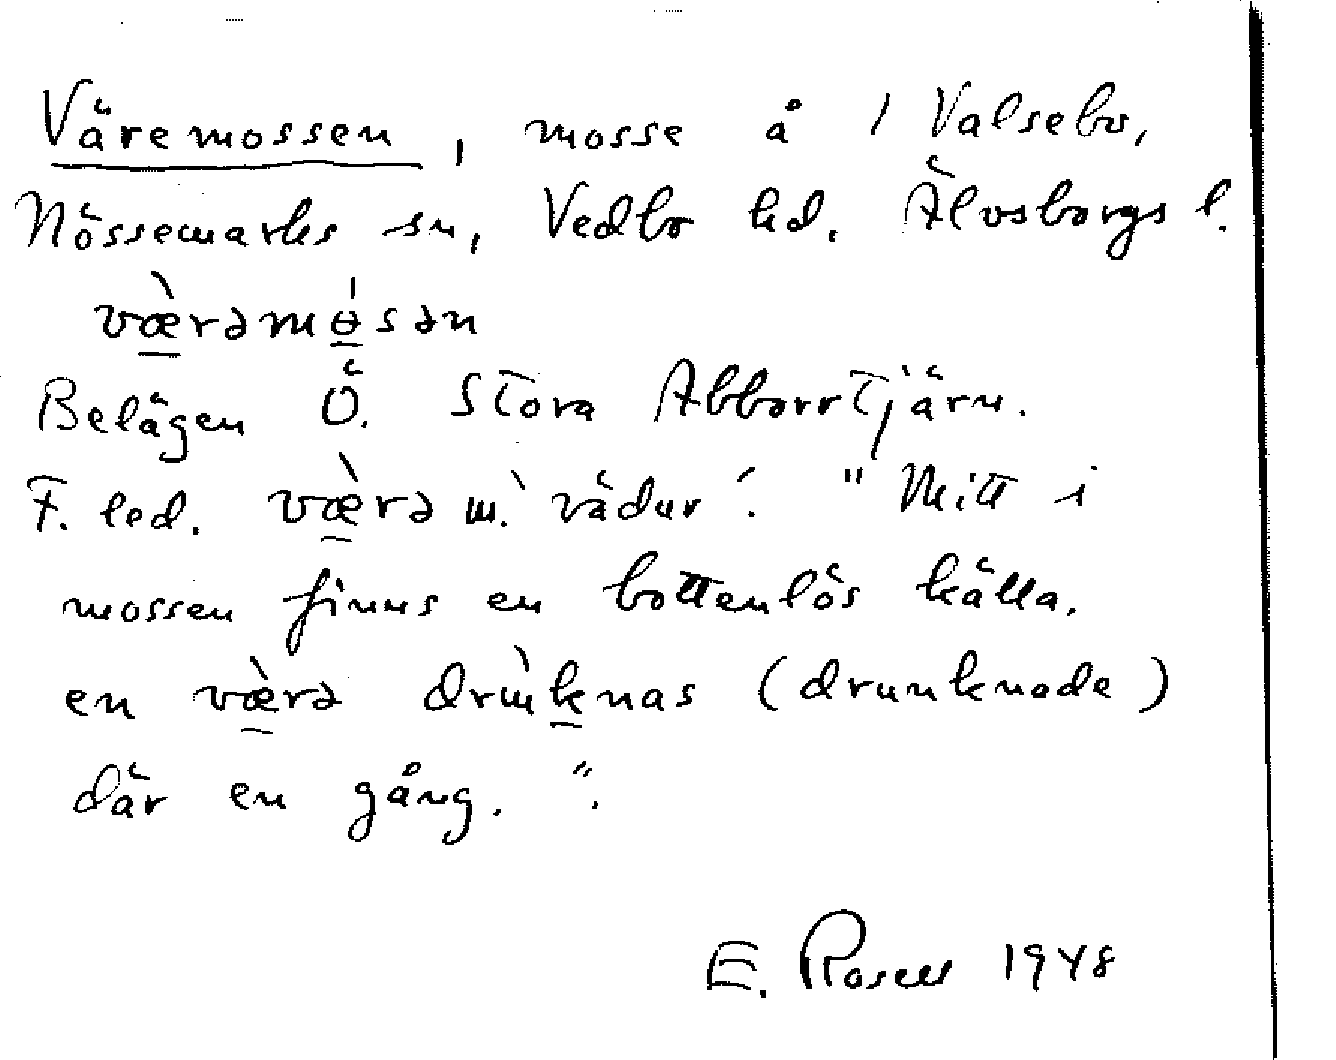 Väremossen, mosse å 1 Valsebo,
Nössemarks sn, Vedbo hd. Älvsborgs l.
væ̀rəmɵ́sən
Belägen Ö. Stora Abborrtjärn.
F. led. væ̀rə m. ̀vädur ́. "Mitt i
mossen finns en bottenlös källa.
en væ̀rə drùŋknas (drunknade)
där en gång.".
E. Rosell 1948